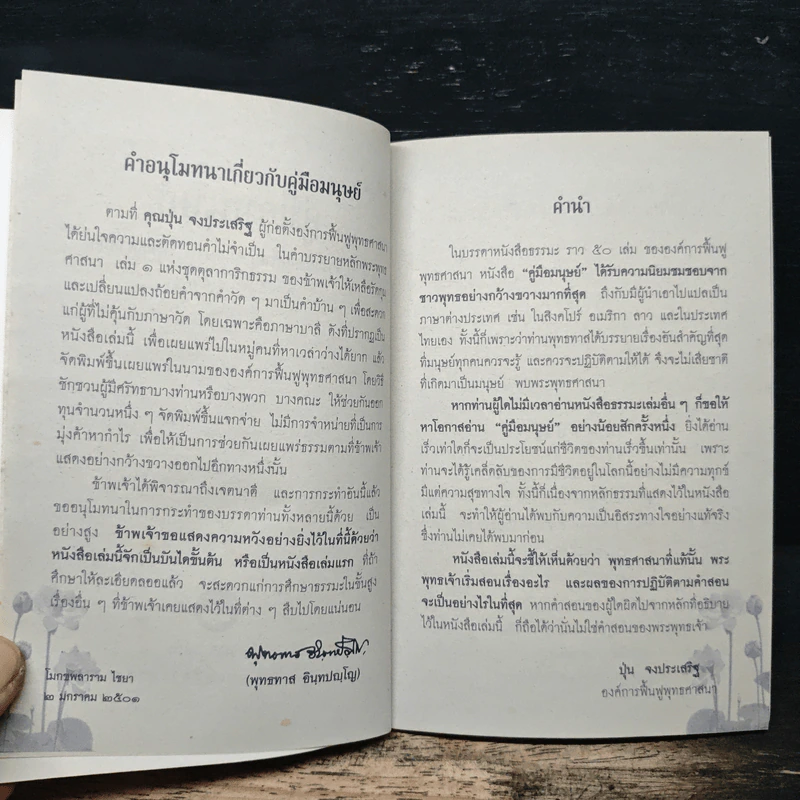 คำอนุโมทนาเกี่ยวกับคู่มือมนุษย์
ตามที่ คุณปุ่น จงประเสริฐ ผู้ก่อตั้งองค์การฟื้นฟูพุทธศาสนา
ได้ย่นใจความและตัดทอนคำไม่จำเป็น ในคำบรรยายหลักพระพุทธ
ศาสนา เล่ม ๑ แห่งชุดตุลาการิกธรรม ของข้าพเจ้าให้เหลือรัดกุม
และเปลี่ยนแปลงถ้อยคำจากคำวัด ๆ มาเป็นคำบ้าน ๆ เพื่อสะดวก
แก่ผู้ที่ไม่คุ้นกับภาษาวัด โดยเฉพาะคือภาษาบาลี ดังที่ปรากฏเป็น
หนังสือเล่มนี้ เพื่อเผยแพร่ไปในหมู่คนที่หาเวลาว่างได้ยาก แล้ว
จัดพิมพ์ขึ้นเผยแพร่ในนามขององค์การฟื้นฟูพุทธศาสนา โดยวิธี
ชักชวนผู้มีศรัทธาบางท่านหรือบางพวก บางคณะ ให้ช่วยกันออก
ทุนจำนวนหนึ่ง ๆ จัดพิมพ์ขึ้นแจกจ่าย ไม่มีการจำหน่ายที่เป็นการ
มุ่งค้าหากำไร เพื่อให้เป็นการช่วยกันเผยแพร่ธรรมตามที่ข้าพเจ้า
แสดงอย่างกว้างขวางออกไปอีกทางหนึ่งนั้น
ข้าพเจ้าได้พิจารณาถึงเจตนาดี และการกระทำอันนี้แล้ว
ขออนุโมทนาในการกระทำของบรรดาท่านทั้งหลายนี้ด้วย เป็น
อย่างสูง ข้าพเจ้าขอแสดงความหวังอย่างยิ่งไว้ในที่นี้ด้วยว่า
หนังสือเล่มนี้จักเป็นบันไดขั้นต้น หรือเป็นหนังสือเล่มแรก ที่ถ้า
ศึกษาให้ละเอียดลออแล้ว จะสะดวกแก่การศึกษาธรรมะในชั้นสูง
เรื่องอื่น ๆ ที่ข้าพเจ้าเคยแสดงไว้ในที่ต่าง ๆ สืบไปโดยแน่นอน
พุทธทาส อินฺทปญฺโญ
(พุทธทาส อินฺทปญฺโญ)
โมกขพลาราม ไชยา
๒ มกราคม ๒๕๐๑
คำนำ
ในบรรดาหนังสือธรรมะ ราว ๕๐ เล่ม ขององค์การฟื้นฟู
พุทธศาสนา หนังสือ “คู่มือมนุษย์” ได้รับความนิยมชมชอบจาก
ชาวพุทธอย่างกว้างขวางมากที่สุด ถึงกับมีผู้นำเอาไปแปลเป็น
ภาษาต่างประเทศ เช่น ในสิงคโปร์ อเมริกา ลาว และในประเทศ
ไทยเอง ทั้งนี้ก็เพราะว่าท่านพุทธทาสได้บรรยายเรื่องอันสำคัญที่สุด
ที่มนุษย์ทุกคนควรจะรู้ และควรจะปฏิบัติตามให้ได้ จึงจะไม่เสียชาติ
ที่เกิดมาเป็นมนุษย์ พบพระพุทธศาสนา
หากท่านผู้ใดไม่มีเวลาอ่านหนังสือธรรมะเล่มอื่น ๆ ก็ขอให้
หาโอกาสอ่าน “คู่มือมนุษย์” อย่างน้อยสักครั้งหนึ่ง ยิ่งได้อ่าน
เร็วเท่าใดก็จะเป็นประโยชน์แก่ชีวิตของท่านเร็วขึ้นเท่านั้น เพราะ
ท่านจะได้รู้เคล็ดลับของการมีชีวิตอยู่ในโลกนี้อย่างไม่มีความทุกข์
มีแต่ความสุขทางใจ ทั้งนี้ก็เนื่องจากหลักธรรมที่แสดงไว้ในหนังสือ
เล่มนี้ จะทำให้ผู้อ่านได้พบกับความเป็นอิสระทางใจอย่างแท้จริง
ซึ่งท่านไม่เคยได้พบมาก่อน
หนังสือเล่มนี้จะชี้ให้เห็นด้วยว่า พุทธศาสนาที่แท้นั้น พระ
พุทธเจ้าเริ่มสอนเรื่องอะไร และผลของการปฏิบัติตามคำสอน
จะเป็นอย่างไรในที่สุด หากคำสอนของผู้ใดผิดไปจากหลักที่อธิบาย
ไว้ในหนังสือเล่มนี้ ก็ถือได้ว่านั่นไม่ใช่คำสอนของพระพุทธเจ้า
ปุ่น จงประเสริฐ
องค์การฟื้นฟูพุทธศาสนา